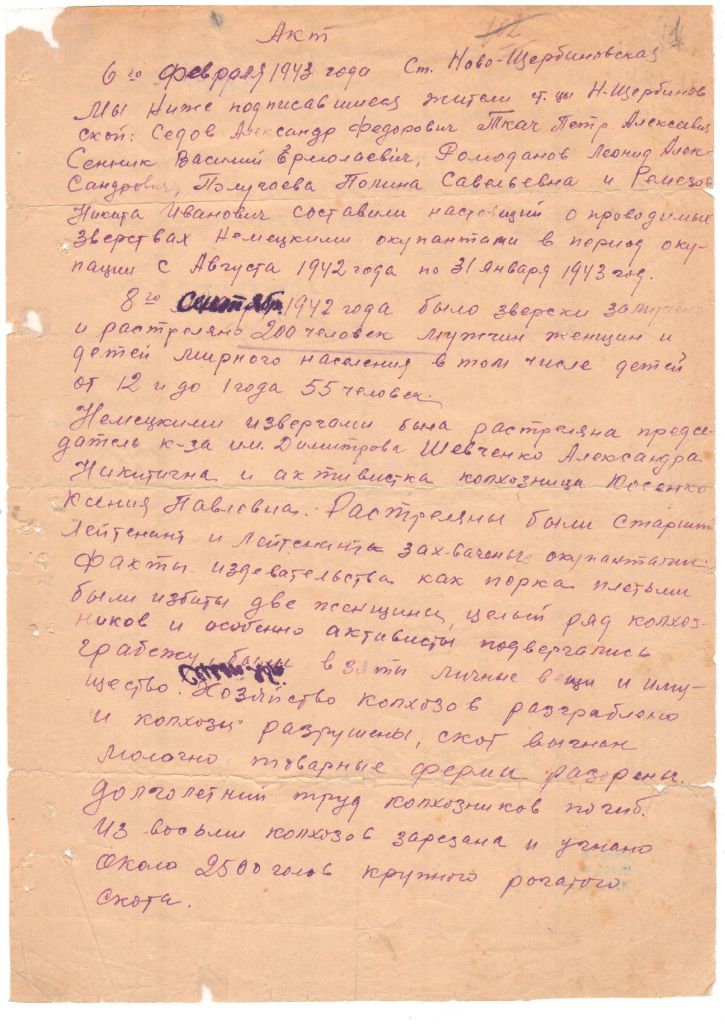 102 1
Акт
6го февраля 1943 года Ст. Ново-Щербиновская
Мы ниже подписавшиеся жители ст.цы Н-Щербинов
ской: Седов Александр Федорович Ткач Петр Алексеевич
Сенник Василий Ермолаевич, Ромоданов Леонид Алек-
сандрович, Полугаева Полина Савельевна и Ремезов
Никита Иванович составили настоящий о проводимых
зверствах Немецкими окупантами в период оку-
пации с Августа 1942 года по 31 января 1943 год.
8го Сентября 1942 года было зверски замучено
и растреляно 200 человек мужчин женщин и
детей мирного населения в том числе детей
от 12 и до 1 года 55 человек.
Немецкими извергами была растреляна предсе-
датель к-за им. Димитрова Шевченко Александра
Никитична и активистка колхозница Юсенко
Ксения Павловна. Растреляны были старший
лейтенант и лейтенант захвачены окупантами.
Факты издевательства как порка плетьми
были избиты две женщины, целый ряд колхоз-
ников и особенно активисты подвергались
грабежу, были взяты личные вещи и иму-
щество. Хозяйство колхозов разграблено
и колхозы разрушены, скот выгнан
молочно товарные фермы разорены.
Долголетний труд колхозников погиб.
Из восьми колхозов зарезана и угнано
около 2500 голов крупного рогатого
скота.